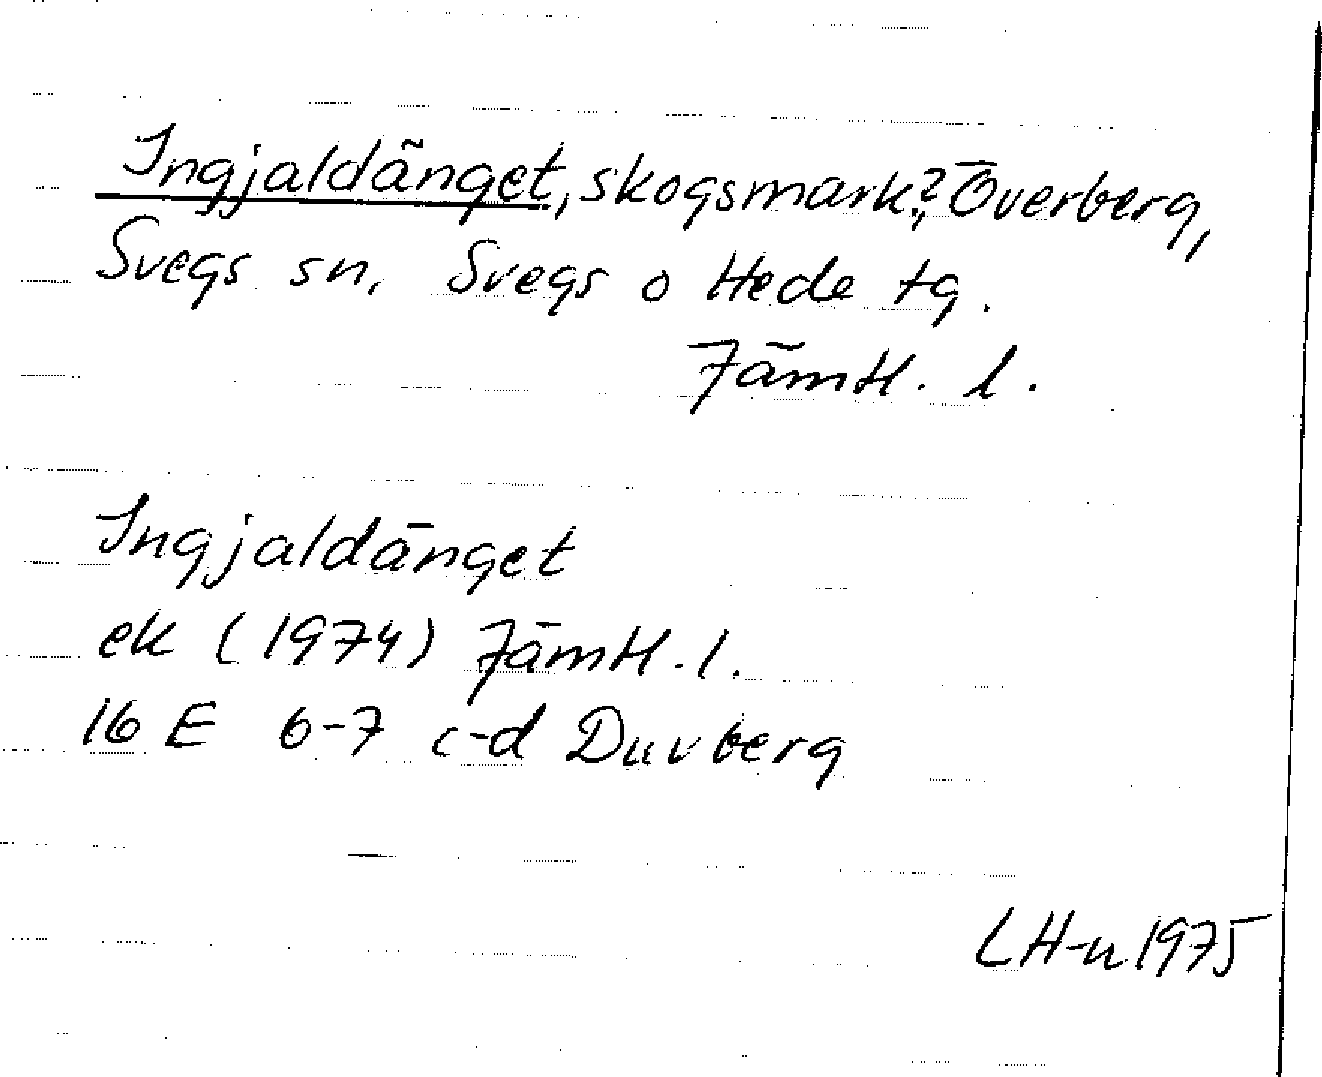 Ingjaldänget, skogsmark?, Överberg,
Svegs sn, Svegs o Hede tg.
Jämtl. l.
Ingjaldänget
ek (1974) Jämtl. l.
16 E 6-7 c-d Duvberg
LH-n 1975